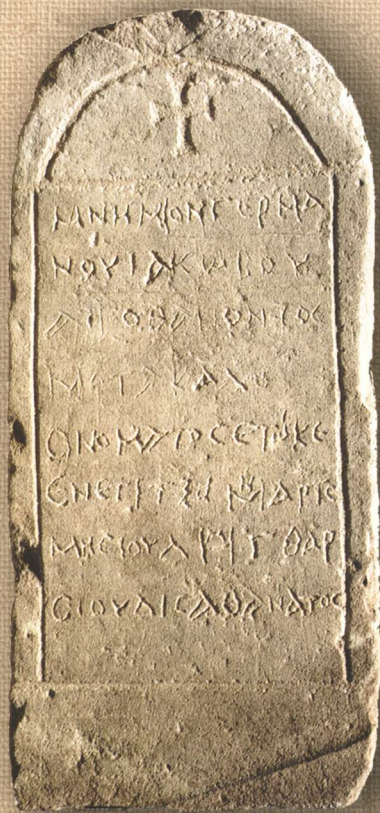 ΜΝΗΜΙΟΝ ΓΕΡΜΑ
ΝΟΥ ΙΑΚΩΒΟΥ
ΑΠΟΘΑΝΟΝΤΟC
ΜΕΤΑ ΚΑΛΟΥ
ΟΝΟΜΑΤΟC ΕΤ ΚΕ
ΕΝ ΕΤΙ ΑΡΤΕ
ΜΗCΙΟΥ ΘΑΡ
CΙ ΟΥΔΙC ΑΘΑΝΑΤΟC